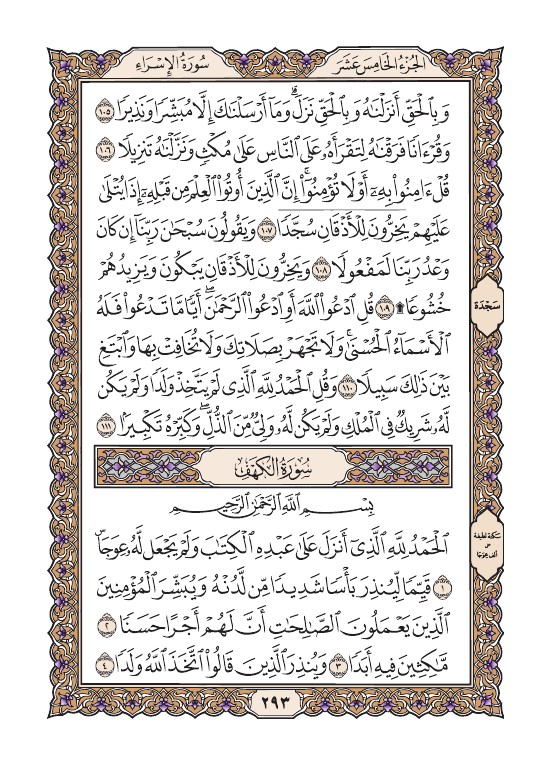 الجُزءُ الخَامِسَ عَشَرَ
سُورَةُ الإِسْرَاءِ
وَبِٱلْحَقِّ أَنزَلْنَٰهُ وَبِٱلْحَقِّ نَزَلَۗ وَمَآ أَرْسَلْنَٰكَ إِلَّا مُبَشِّرًا وَنَذِيرًا ١٠٥
وَقُرْءَانًا فَرَقْنَٰهُ لِتَقْرَأَهُۥ عَلَى ٱلنَّاسِ عَلَىٰ مُكْثٍ وَنَزَّلْنَٰهُ تَنزِيلًا ١٠٦
قُلْ ءَامِنُوا۟ بِهِۦٓ أَوْ لَا تُؤْمِنُوٓا۟ۚ إِنَّ ٱلَّذِينَ أُوتُوا۟ ٱلْعِلْمَ مِن قَبْلِهِۦٓ إِذَا يُتْلَىٰ
عَلَيْهِمْ يَخِرُّونَ لِلْأَذْقَانِ سُجَّدًا ١٠٧ وَيَقُولُونَ سُبْحَٰنَ رَبِّنَآ إِن كَانَ
وَعْدُ رَبِّنَا لَمَفْعُولًا ١٠٨ وَيَخِرُّونَ لِلْأَذْقَانِ يَبْكُونَ وَيَزِيدُهُمْ
خُشُوعًا ۩ ١٠٩ قُلِ ٱدْعُوا۟ ٱللَّهَ أَوِ ٱدْعُوا۟ ٱلرَّحْمَٰنَۖ أَيًّا مَّا تَدْعُوا۟ فَلَهُ
ٱلْأَسْمَآءُ ٱلْحُسْنَىٰۚ وَلَا تَجْهَرْ بِصَلَاتِكَ وَلَا تُخَافِتْ بِهَا وَٱبْتَغِ
بَيْنَ ذَٰلِكَ سَبِيلًا ١١٠ وَقُلِ ٱلْحَمْدُ لِلَّهِ ٱلَّذِى لَمْ يَتَّخِذْ وَلَدًا وَلَمْ يَكُن
لَّهُۥ شَرِيكٌ فِى ٱلْمُلْكِ وَلَمْ يَكُن لَّهُۥ وَلِىٌّ مِّنَ ٱلذُّلِّۖ وَكَبِّرْهُ تَكْبِيرًۢا ١١١
سُورَةُ الكَهْفِ
بِسْمِ ٱللَّهِ ٱلرَّحْمَٰنِ ٱلرَّحِيمِ
ٱلْحَمْدُ لِلَّهِ ٱلَّذِىٓ أَنزَلَ عَلَىٰ عَبْدِهِ ٱلْكِتَٰبَ وَلَمْ يَجْعَل لَّهُۥ عِوَجَاۜ
١ قَيِّمًا لِّيُنذِرَ بَأْسًا شَدِيدًا مِّن لَّدُنْهُ وَيُبَشِّرَ ٱلْمُؤْمِنِينَ
ٱلَّذِينَ يَعْمَلُونَ ٱلصَّٰلِحَٰتِ أَنَّ لَهُمْ أَجْرًا حَسَنًا ٢
مَّٰكِثِينَ فِيهِ أَبَدًا ٣ وَيُنذِرَ ٱلَّذِينَ قَالُوا۟ ٱتَّخَذَ ٱللَّهُ وَلَدًا ٤
سَجْدَة
سكتة لطيفة
٢٩٣